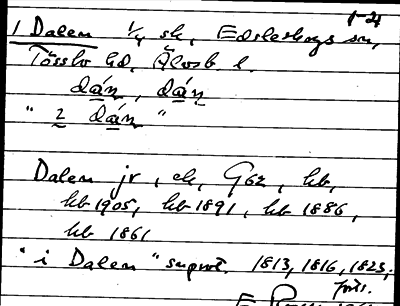 1-2
1 Dalen 1/4 sk, Edsleskogs sn,
Tössbo hd. Älvsb. l.
dán, dán
" 2 dán "
Dalen jr, ek, G62, hb,
hb 1905, hb 1891, hb 1886,
hb 1861
"i Dalen" 1813, 1816, 1823,
forts.